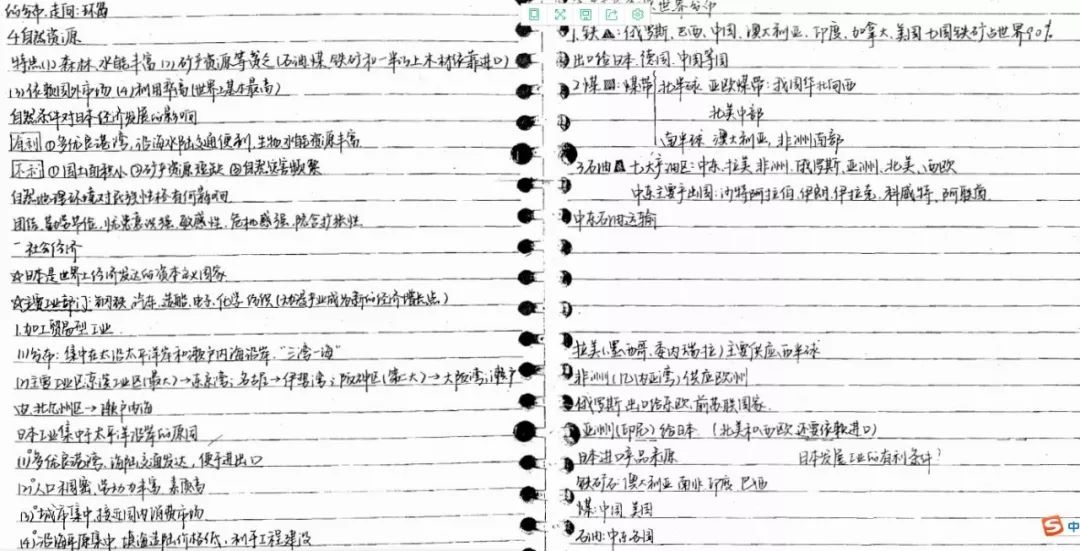 的分布、走向:环岛
4.自然资源
特点(1)森林、水能丰富(2)矿产资源等贫乏(石油、煤、铁矿和一半以上木材依靠进口)
(3)依赖国外市场 (4)利用率高(世界上基本最高)
自然条件对日本经济发展的影响
有利 ①多优良港湾,沿海水陆交通便利,生物水能资源丰富
不利 ①国土面积小 ②矿产资源短缺 ③自然灾害频繁
自然地理环境对民族性格有何影响
团结,勤劳,忧患意识强,敏感性,危机感强,
一 社会经济
☆日本是世界上经济发达的资本主义国家
☆主要工业部门:钢铁、汽车、造船、电子、化学、纺织(动漫产业成为新的经济增长点)
1.加工贸易型工业
(1)分布:集中在太平洋沿岸和濑户内海沿岸,"三湾一海"
(2)主要工业区京滨工业区(最大)→东京湾;名古屋→伊势湾;阪神区(第二大)→大阪湾;濑户
内,北九州区→濑户内海
日本工业集中于太平洋沿岸的原因
(1)°多优良港湾,海陆交通发达,便于进出口
(2)°人口稠密,劳动力丰富,素质高
(3)°城市集中,接近国内消费市场
(4)°沿海平原集中,填海造陆价格低,利于工程建设
世界分布
1.铁▲:俄罗斯、巴西、中国、澳大利亚、印度、加拿大、美国七国铁矿占世界90%
出口给日本、德国、中国等国
2煤▤:煤带 北半球 亚欧煤带:我国华北向西
北美中部
南半球 澳大利亚、非洲南部
3.石油▲ 七大产油区:中东、拉美、非洲、俄罗斯、亚洲、北美、西欧
中东主要产出国:沙特阿拉伯、伊朗、伊拉克、科威特、阿联酋
中东石油运输
拉美(墨西哥、委内瑞拉)主要供应西半球
非洲(几内亚湾)供应欧洲
俄罗斯出口给东欧、前苏联国家
亚洲(印尼)给日本 (北美和西欧还要依赖进口)
日本进口产品来源 日本发展工业的有利条件?
铁矿石:澳大利亚 南非 印度 巴西
煤:中国 美国
石油:中东各国
中